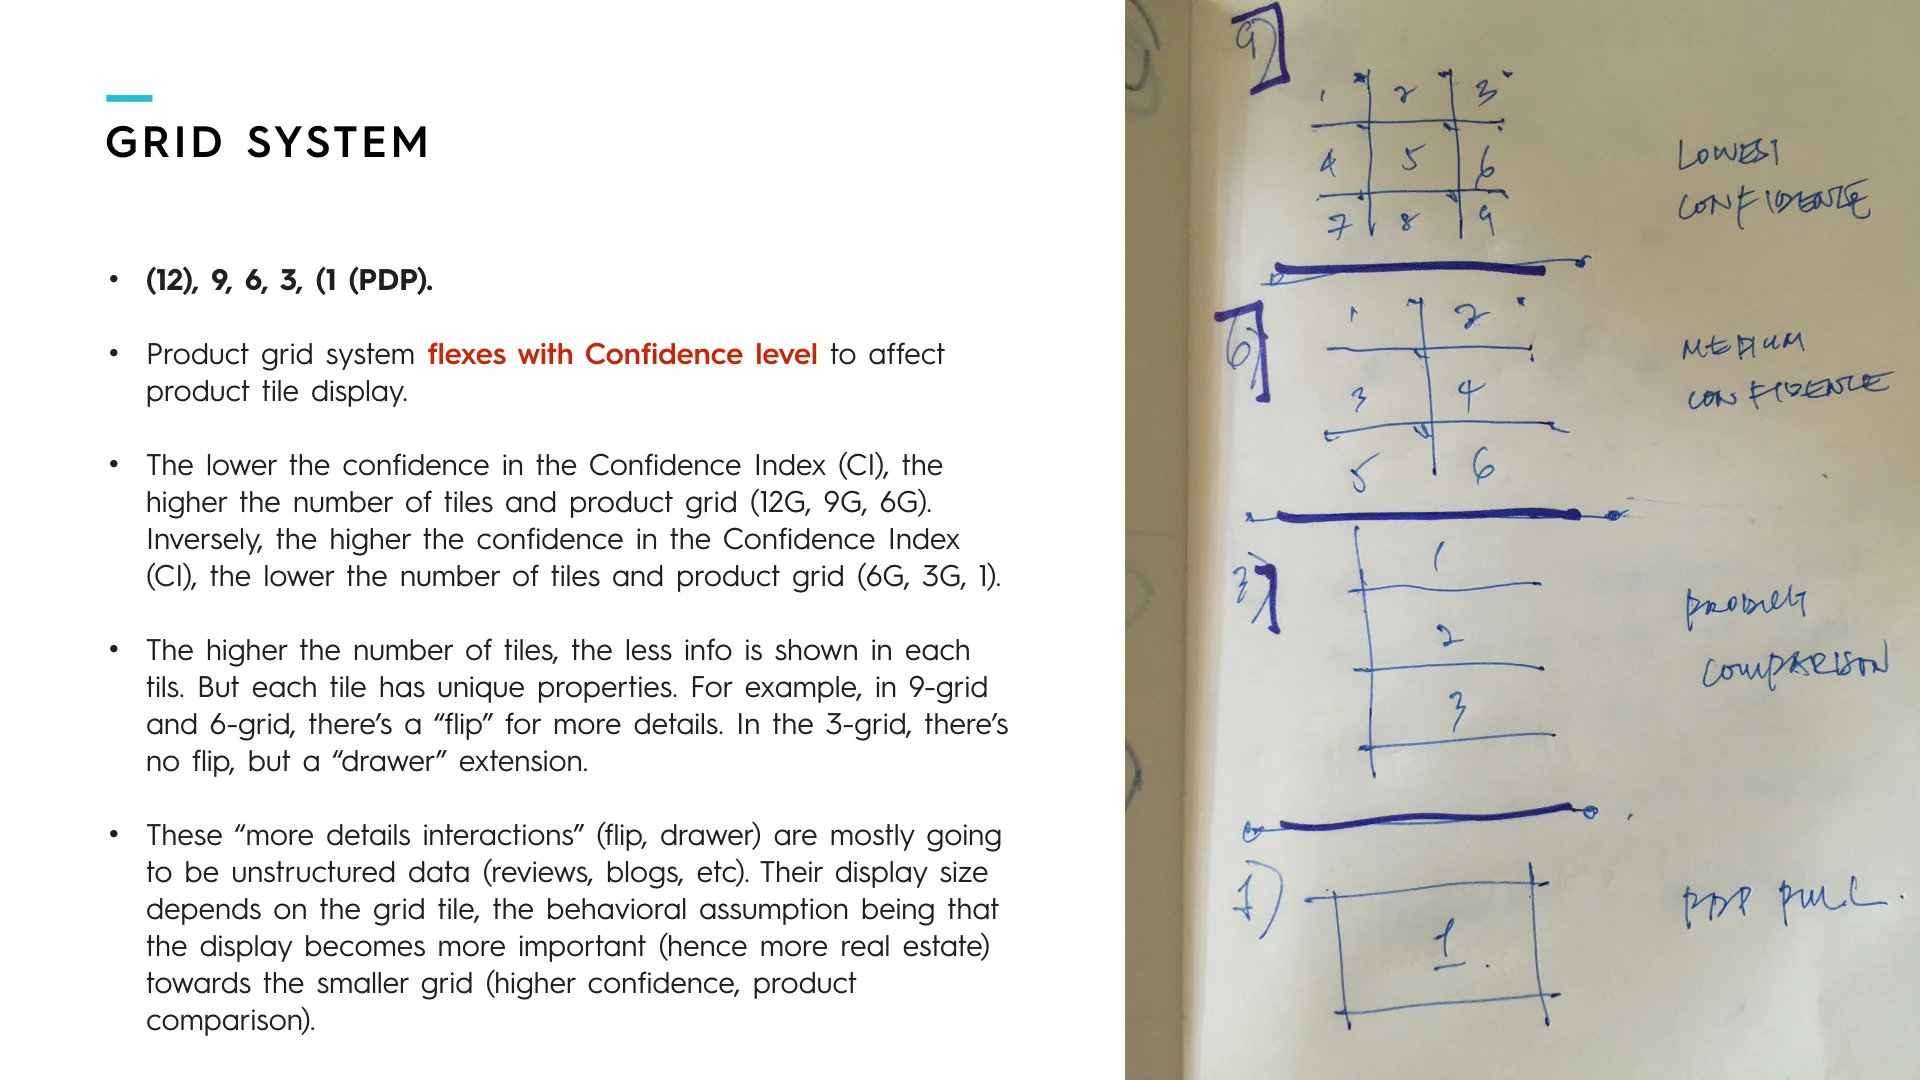 GRID SYSTEM
• (12), 9, 6, 3, (1 (PDP).
• Product grid system flexes with Confidence level to affect
product tile display.
• The lower the confidence in the Confidence Index (CI), the
higher the number of tiles and product grid (12G, 9G, 6G).
Inversely, the higher the confidence in the Confidence Index
(CI), the lower the number of tiles and product grid (6G, 3G, 1).
• The higher the number of tiles, the less info is shown in each
tils. But each tile has unique properties. For example, in 9-grid
and 6-grid, there’s a “flip” for more details. In the 3-grid, there’s
no flip, but a “drawer” extension.
• These “more details interactions” (flip, drawer) are mostly going
to be unstructured data (reviews, blogs, etc). Their display size
depends on the grid tile, the behavioral assumption being that
the display becomes more important (hence more real estate)
towards the smaller grid (higher confidence, product
comparison).
9)
1 2 3
4 5 6
7 8 9
LOWEST
CONFIDENCE
6)
1 2
3 4
5 6
MEDIUM
CONFIDENCE
3)
1
2
3
PRODUCT
COMPARISON
1)
1
PDP FULL.